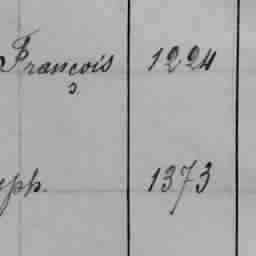 François 1224
pph. 1373